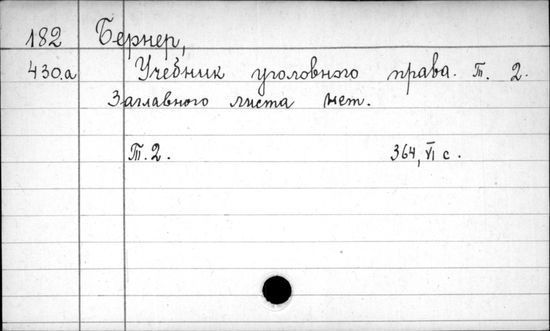 182 Бернер,
430.а Учебник уголовного права. Т. 2.
Заглавного листа нет.
Т. 2. 364, VI с.